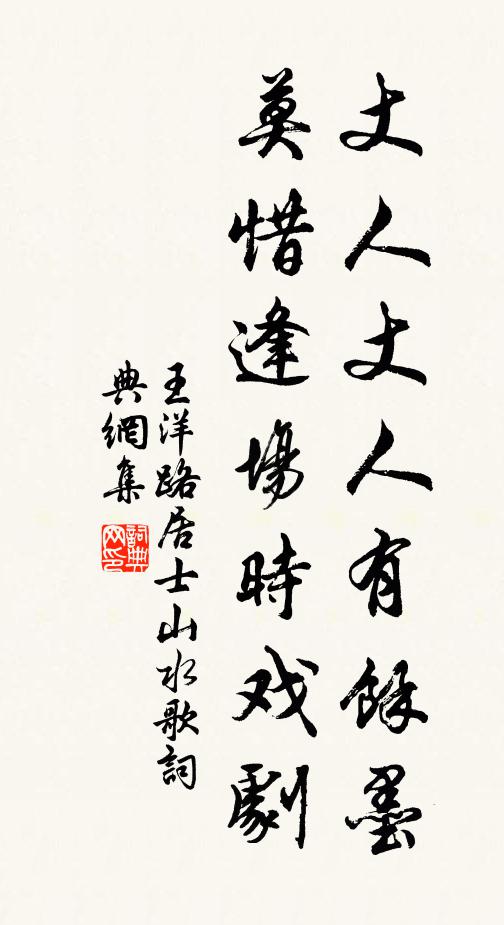 丈人丈人有餘墨
莫惜逢場時戏劇
王洋路居士山水歌詞
典網集
詞典
网印